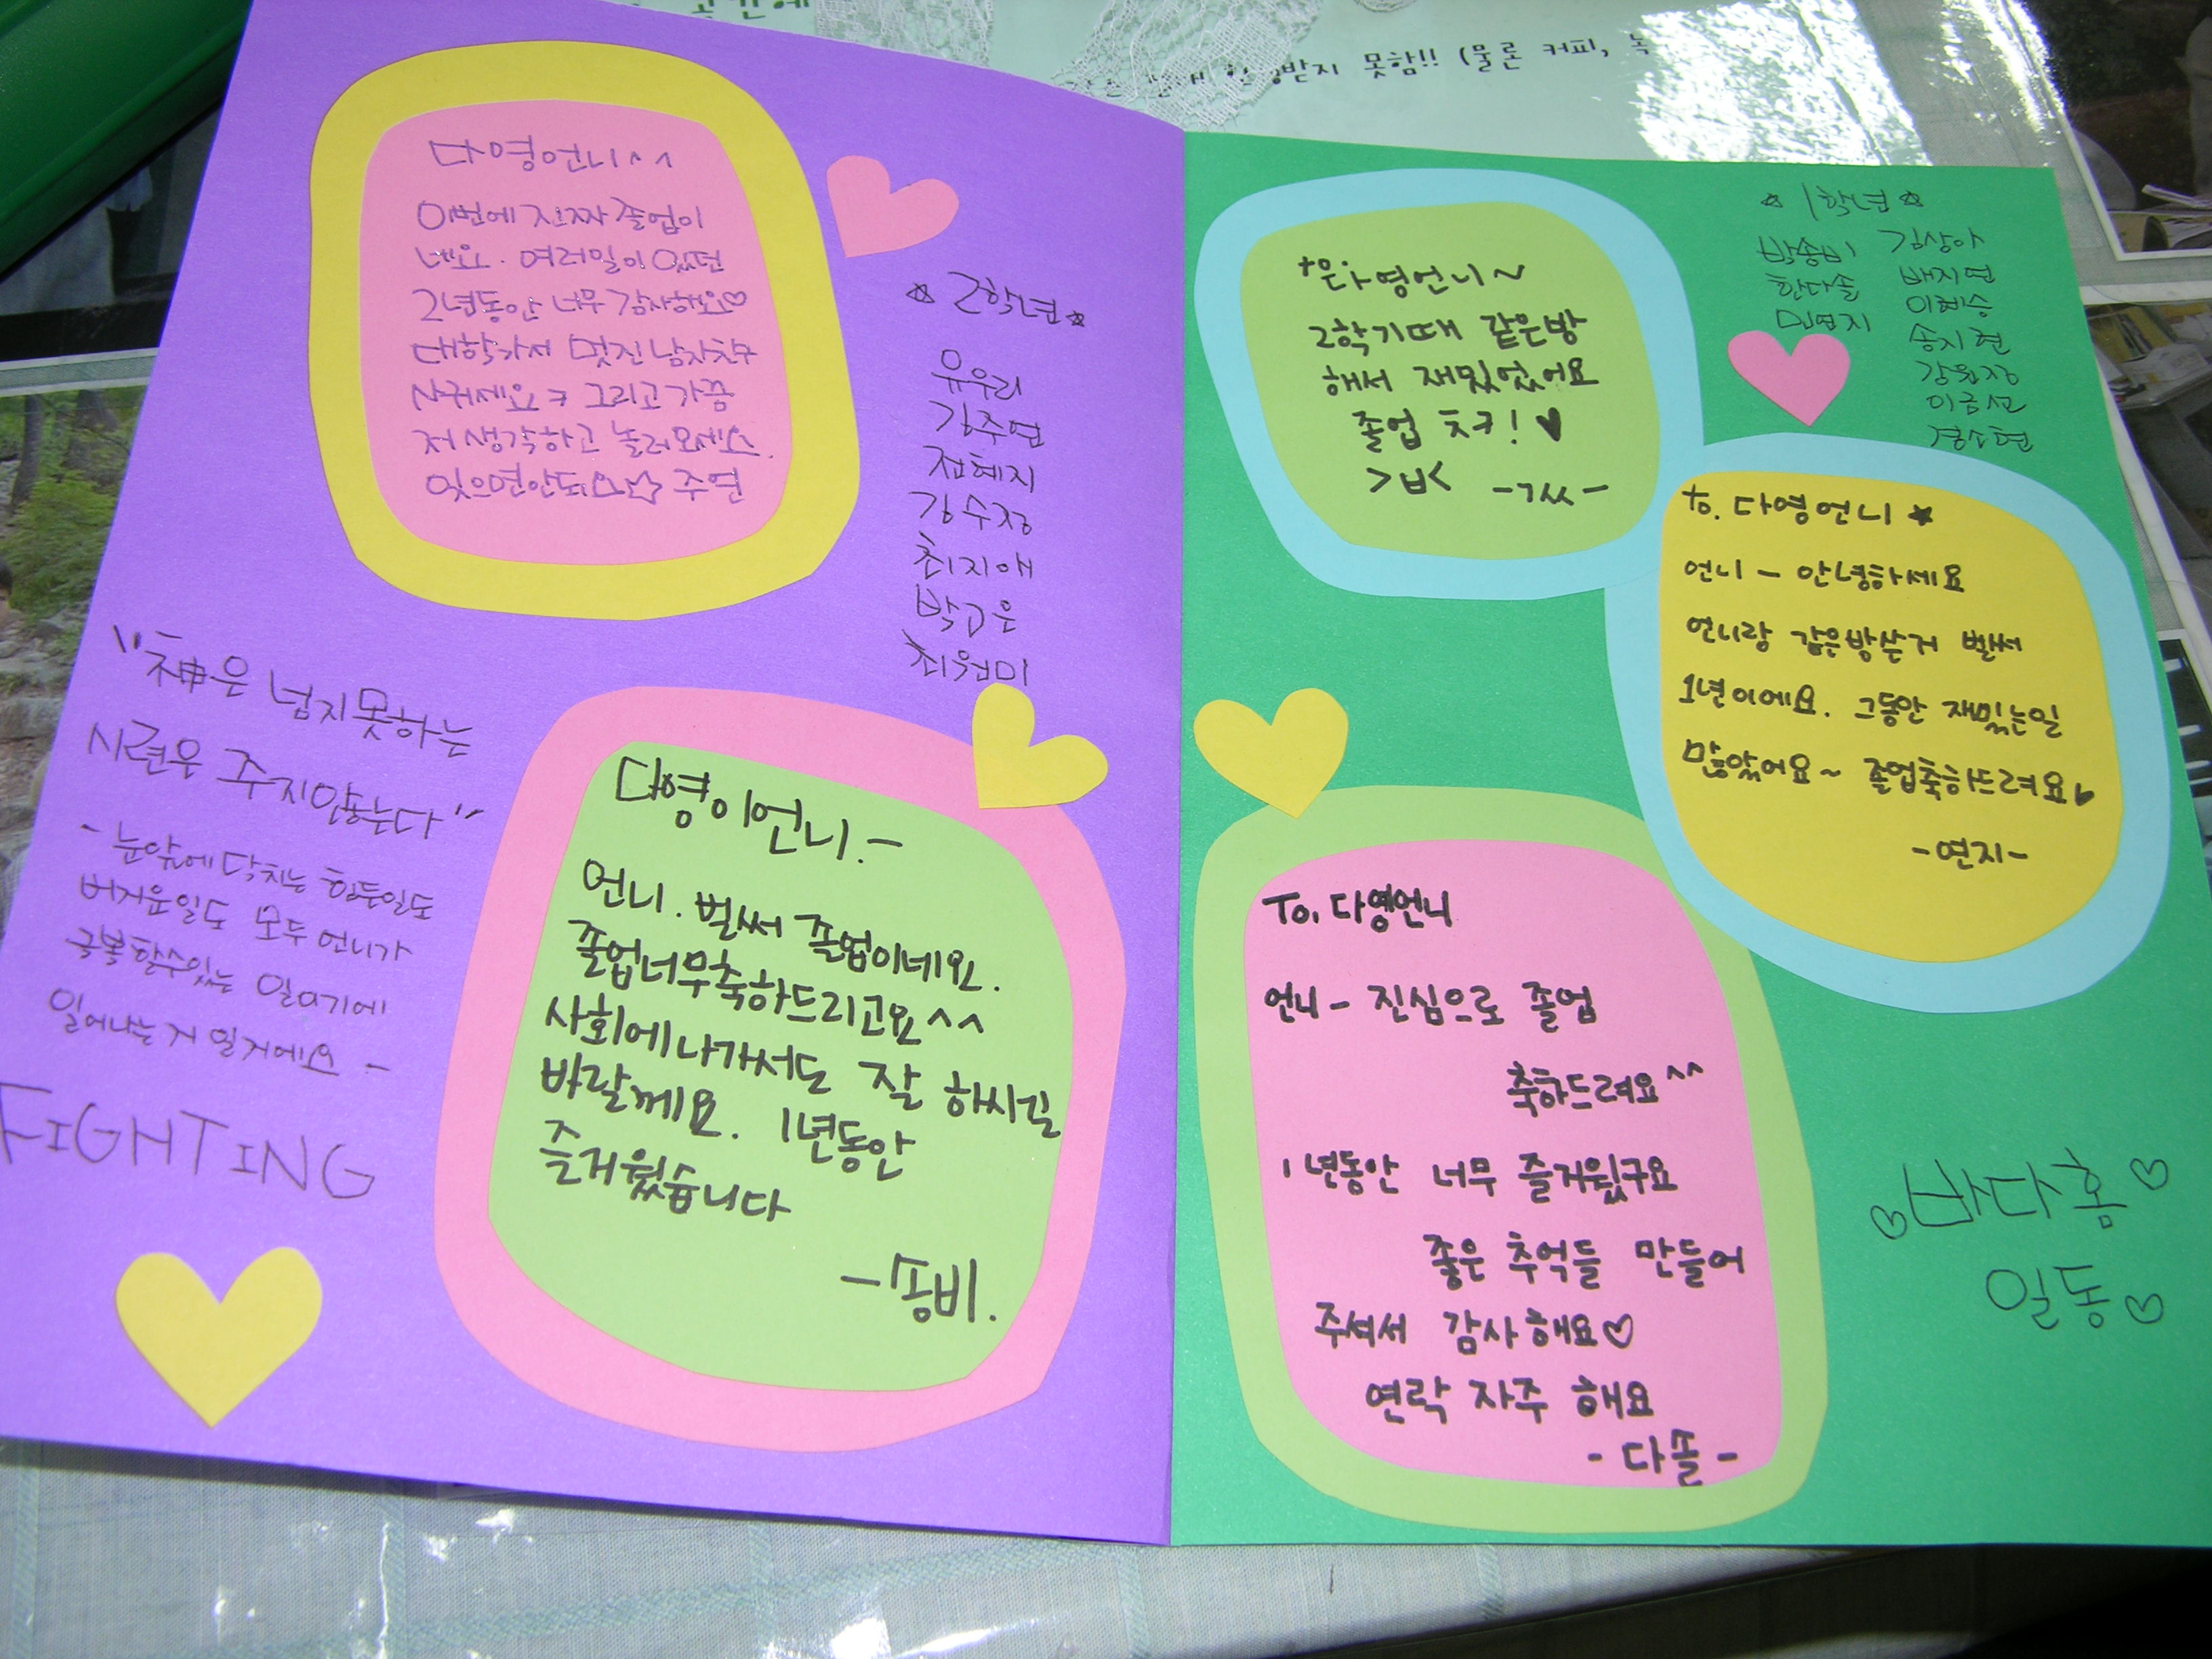 받지 못함!! (물론 커피, 녹
다영언니^^
이번에 진짜 졸업이
네요. 여러일이 있던
2년동안 너무 감사해요♡
대학가서 멋진 남자친구
사귀세요ㅋ 그리고 가끔
저 생각하고 놀러오세요.
잊으면안되 주연
☆ 2학년☆
유우리
김주연
전혜지
강수정
최지애
박고은
최원미
"神은 넘지못하는
시련은 주지않는다"
- 눈앞에 닥치는 힘든일도
버거운일도 모두 언니가
극복할수있는 일이기에
일어나는거 일거에요 -
FIGHTING
다영이언니.-
언니. 벌써 졸업이네요.
졸업너무축하드리고요^^
사회에나가서도 잘 하시길
바랄께요. 1년동안
즐거웠습니다
-송비.
다영언니~
2학기때 같은방
해서 재밌었어요
졸업 ㅊㅋ!♥
>ㅂ< -ㄱㅆ-
☆ 1학년 ☆
박송비 김상아
한다솔 배지연
민연지 이혜승
송지현
강원정
이금선
정소현
to. 다영언니 ★
언니 - 안녕하세요
언니랑 같은방쓴거 벌써
1년이에요. 그동안 재밌는일
많았어요~ 졸업축하드려요♥
-연지-
To. 다영언니
언니- 진심으로 졸업
축하드려요^^
1년동안 너무 즐거웠구요
좋은 추억들 만들어
주셔서 감사해요♡
연락 자주 해요
- 다솔 -
♡바다홈♡
일동♡